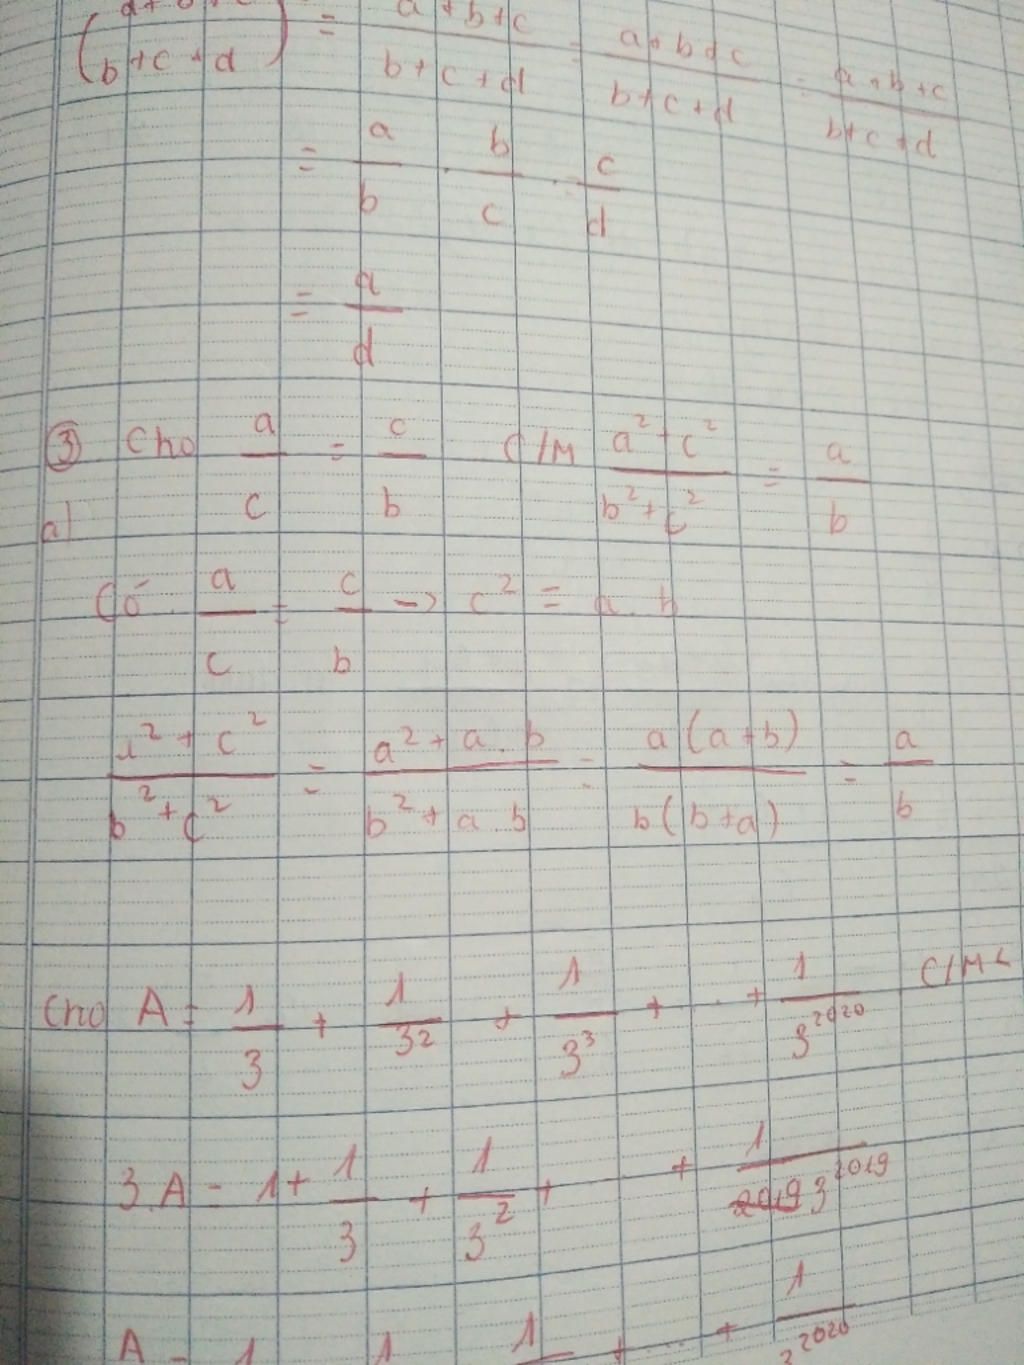 (a+b+c / b+c+d) = a+b+c / b+c+d . a+b+c / b+c+d . a+b+c / b+c+d
= a/b . b/c . c/d
= a/d
③ Cho a/c = c/b C/M a²+c² / b²+c² = a/b
a)
Có a/c = c/b -> c² = a.b
a²+c² / b²+c² = a²+a.b / b²+a.b = a(a+b) / b(b+a) = a/b
Cho A = 1/3 + 1/3² + 1/3³ + ... + 1/3²⁰²⁰ C/M <
3.A = 1 + 1/3 + 1/3² + + 1/3²⁰¹⁹
A = 1 1 1 + ... + 1/3²⁰²⁰